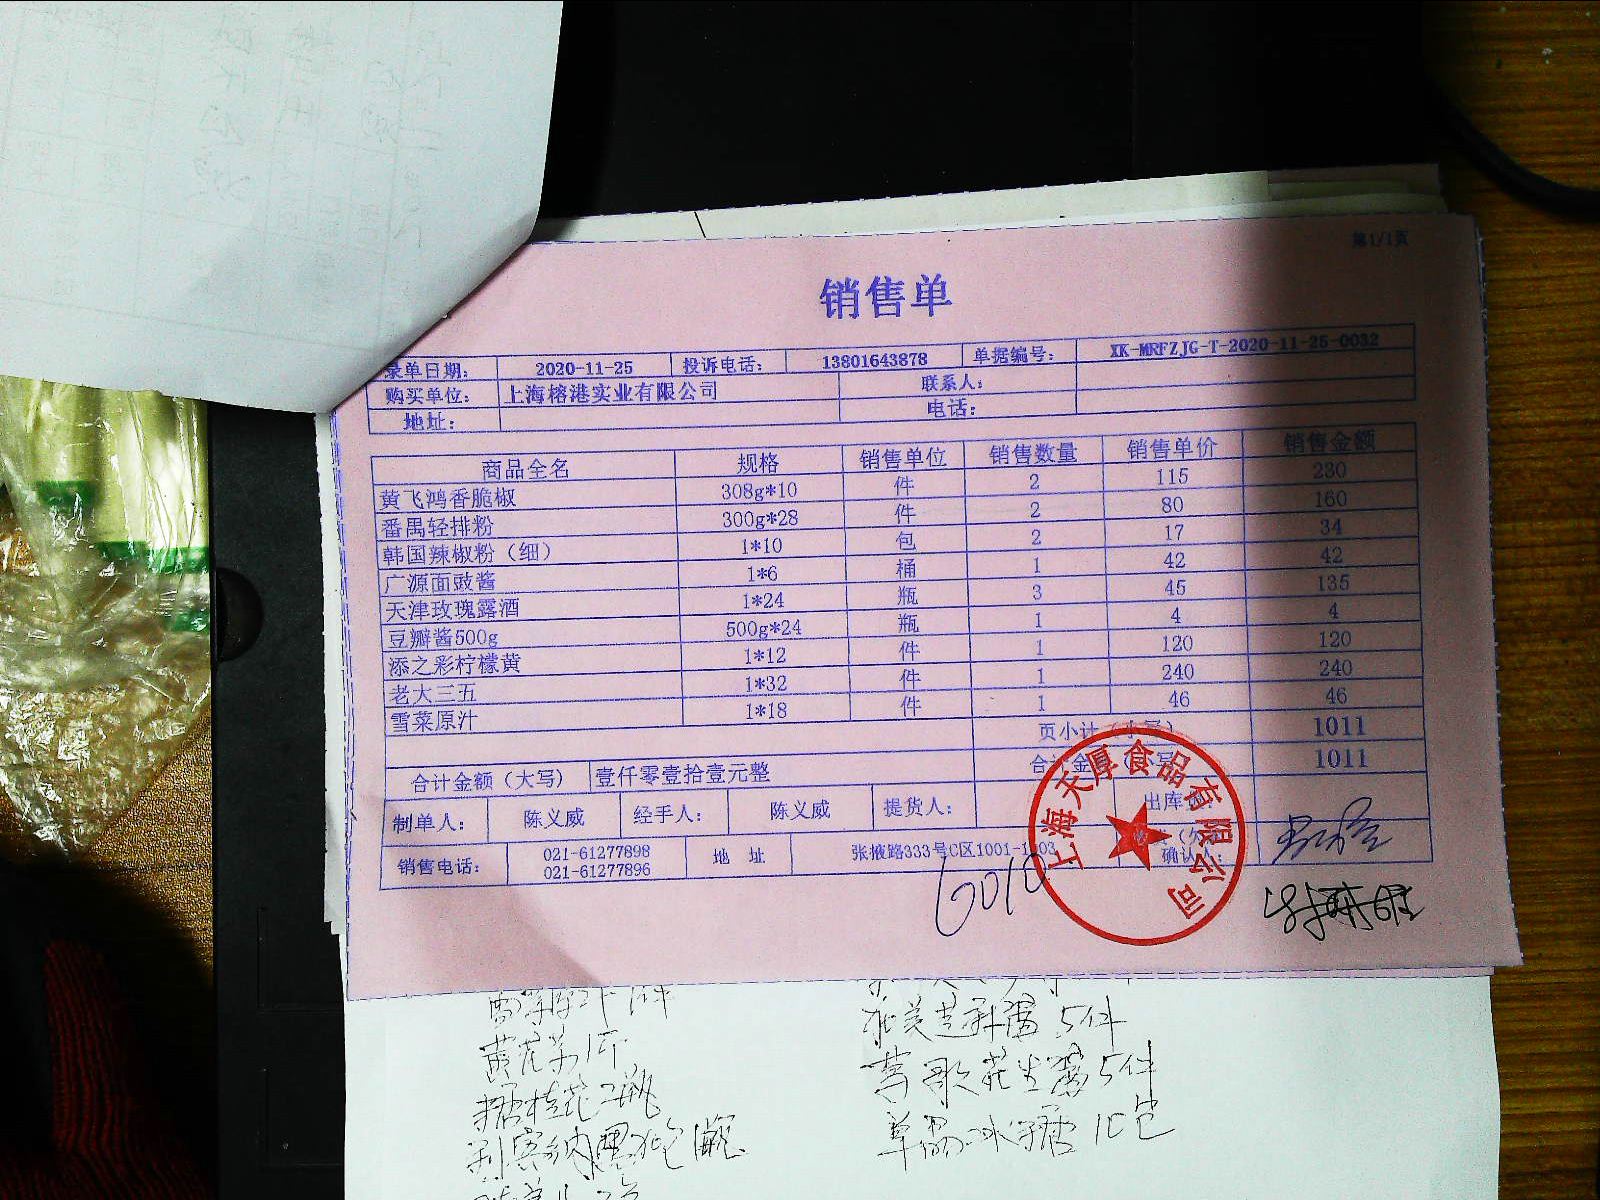 第1/1页
销售单
录单日期： 2020-11-25 投诉电话： 13801643878 单据编号： XK-MRFZJG-T-2020-11-25-0032
购买单位： 上海榕港实业有限公司 联系人：
地址： 电话：
商品全名 规格 销售单位 销售数量 销售单价 销售金额
黄飞鸿香脆椒 308g*10 件 2 115 230
番禺轻排粉 300g*28 件 2 80 160
韩国辣椒粉（细） 1*10 包 2 17 34
广源面豉酱 1*6 桶 1 42 42
天津玫瑰露酒 1*24 瓶 3 45 135
豆瓣酱500g 500g*24 瓶 1 4 4
添之彩柠檬黄 1*12 件 1 120 120
老大三五 1*32 件 1 240 240
雪菜原汁 1*18 件 1 46 46
页小计（小写） 1011
合计金额（大写） 壹仟零壹拾壹元整 合计金额（小写） 1011
制单人： 陈义威 经手人： 陈义威 提货人： 出库
销售电话： 021-61277898 021-61277896 地 址 张掖路333号C区1001-1003 确认人：
上海天厚食品有限公司
6010
黄花菜1斤
糖桂花2瓶
芝麻酱 5件
花生酱5件
单晶冰糖10包